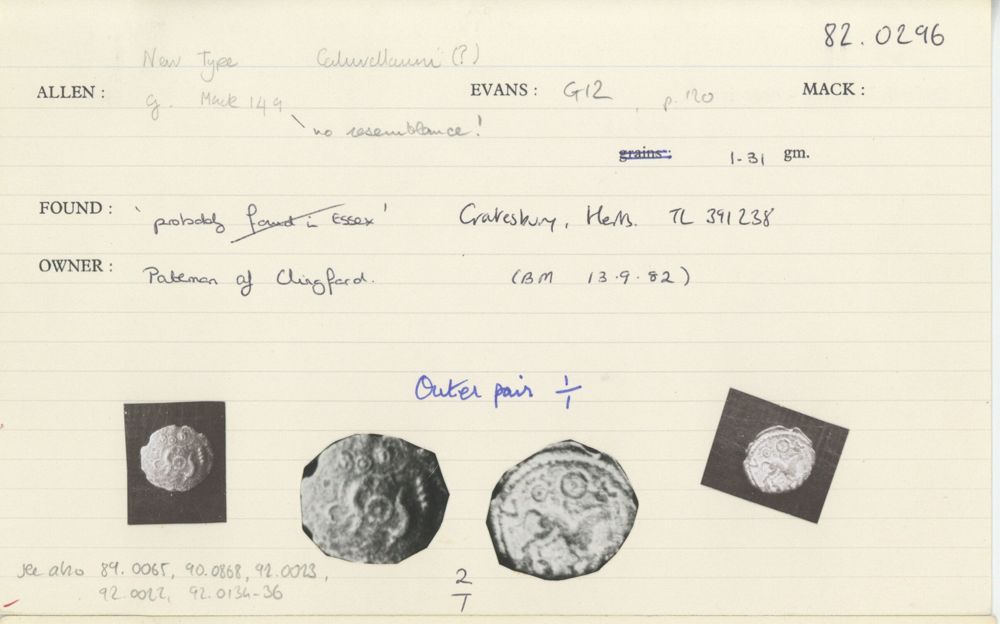 82.0296
New Type Catuvellauni (?)
ALLEN : EVANS : G12 p. 120 MACK :
cf. Mack 149
no resemblance!
grains: 1.31 gm.
FOUND : 'probably found in Essex' Gravesbury, Herts. TL 391238
OWNER : Pateman of Chingford. (BM 13.9.82)
Outer pair 1/1
see also 89.0065, 90.0868, 92.0023,
92.0022, 92.0134-36
2/1